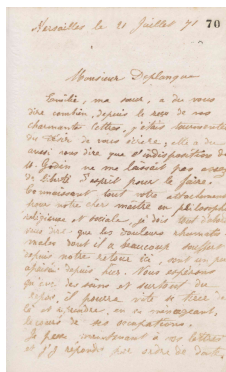 Versailles le 21 Juillet 71 70
Monsieur Deplanque
Emilie, ma sœur, a dû vous
dire combien, depuis le reçu de vos
charmantes lettres, j'étais tourmentée
du désir de vous écrire; elle a dû
aussi vous dire que l'indisposition de
M. Godin ne me laissait pas assez
de liberté d'esprit pour le faire.
Connaissant tout votre attachement
pour notre cher maître en philosophie
religieuse et sociale, je dois tout d'abord
vous dire que les douleurs rhumatis-
males dont il a beaucoup souffert
depuis notre retour ici, sont un peu
apaisées depuis hier. Nous espérons
qu'avec des soins et surtout du
repos, il pourra vite se tirer de
là et reprendre, en se ménageant,
le cours de ses occupations.
Je passe maintenant à vos lettres
et j'y réponds par ordre de date.